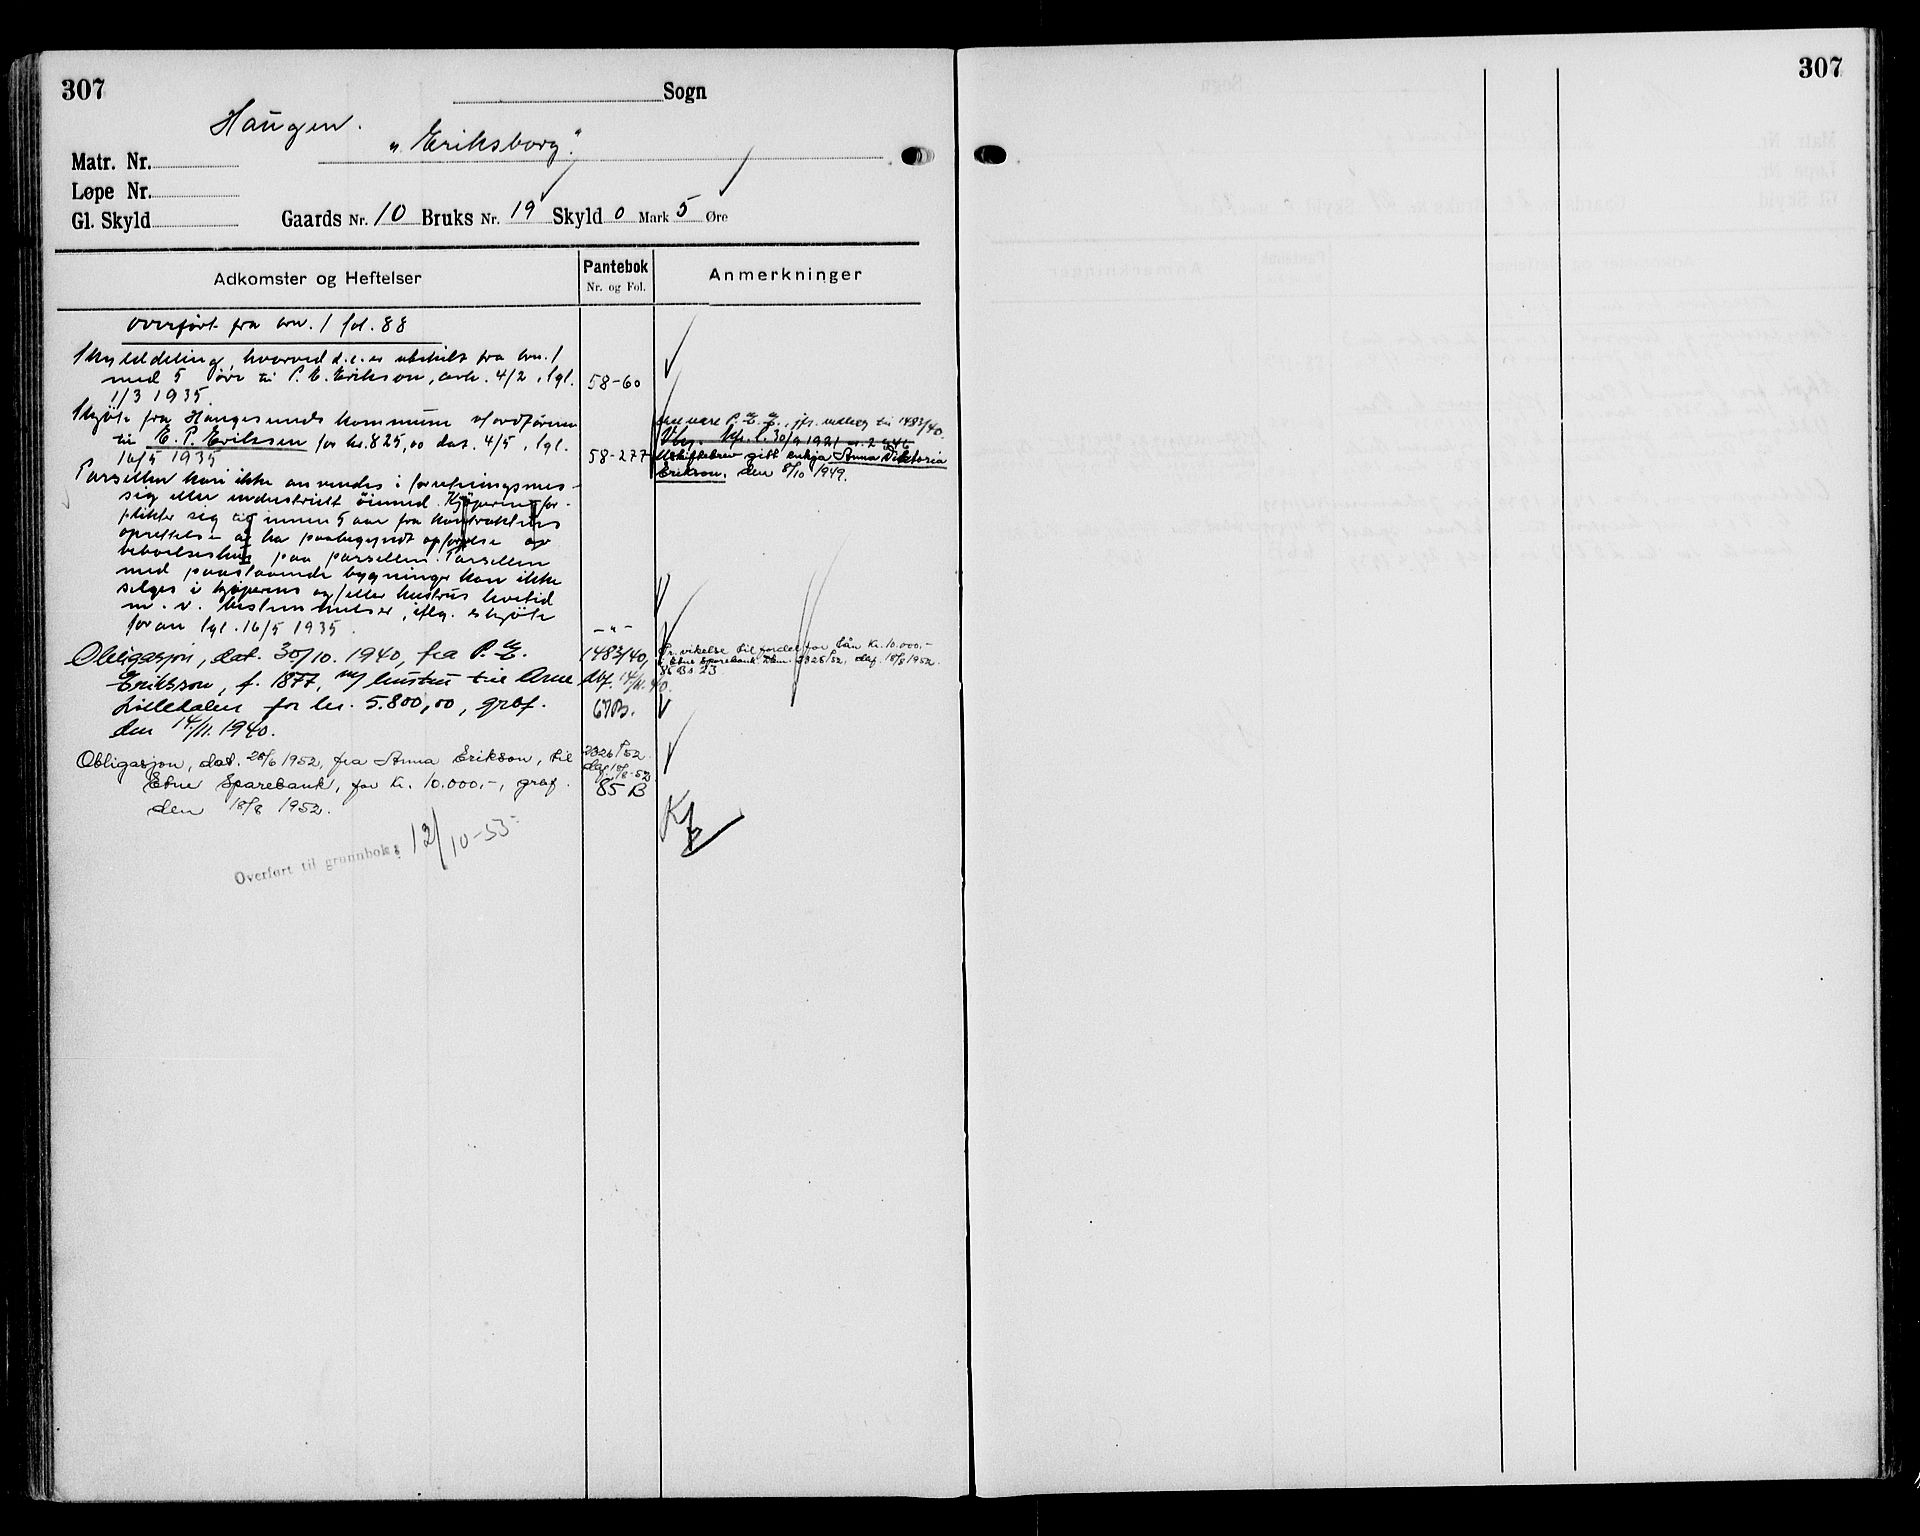 307
Sogn
Haugen.
"Eriksborg".
Matr. Nr.
Løpe Nr.
Gl. Skyld Gaards Nr. 10 Bruks Nr. 19 Skyld 0 Mark 5 Øre
Adkomster og Heftelser
Pantebok
Nr. og Fol.
Anmerkninger
overført fra brn. 1 fol. 88
Skylddeling, hvorved d.e. er utskilt fra brn. 1
med 5 øre til P. E. Erikson, avh. 4/2, lgl.
1/3 1935.
58-60
Skjøte fra Haugesunds kommune v/ordføren
til E. P. Eriksen for kr. 825,00 dat. 4/5, lgl.
16/5 1935
58-277
P. E. E., jfr. 1483/40.
30/9 1921
Uskiftebrev gitt enkja Anna Viktoria
Erikson. den 8/10 1949.
Parsellen kan ikke anvendes i forretningsmes-
sig eller industrielt öiemed. Kjøperen for-
plikter sig til innen 5 aar fra kontraktens
oprettelse å ha paabegyndt opførelse av
beboelseshus paa parsellen. Parsellen
med paastaaende bygninger kan ikke
selges i kjøperens og/eller hustrus levetid
m. v. bestemmelser, iflg. skjöte
foran lgl. 16/5 1935.
-"-
Obligasjon, dat. 30/10. 1940, fra P. E.
Eriksson, f. 1877, m/ hustru til Arne
Lilledalen for kr. 5.800,00, grof.
den 14/11. 1940.
1483/40,
dbf. 14/11.40.
67B.
Pr. vikelse til fordel for lån kr. 10.000,-
t. Etne Sparebank dbn. 2326/52, daf. 18/8 1952.
85 B s 23
Obligasjon, dat. 28/6 1952, fra Anna Erikson, til
Etne Sparebank, for kr. 10.000,-, grof.
den 18/8 1952.
2326/52
daf. 18/8-52
85 B
Overført til grunnbok: 12/10-53
307